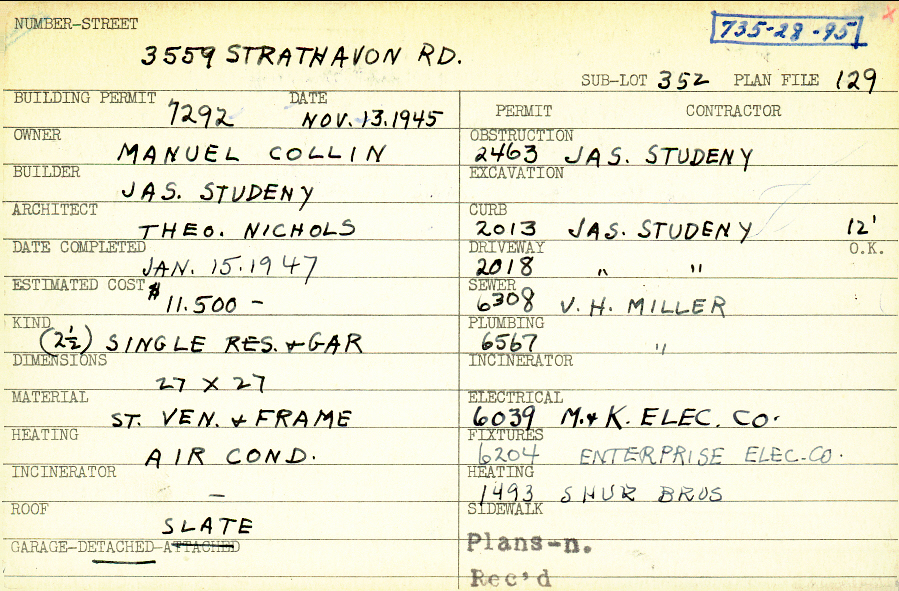 NUMBER-STREET
735-28-95
3559 STRATHAVON RD.
SUB-LOT 352 PLAN FILE 129
BUILDING PERMIT 7292 DATE NOV. 13. 1945
OWNER MANUEL COLLIN
BUILDER JAS. STUDENY
ARCHITECT THEO. NICHOLS
DATE COMPLETED JAN. 15. 1947
ESTIMATED COST $ 11.500 -
KIND (2½) SINGLE RES. & GAR
DIMENSIONS 27 X 27
MATERIAL ST. VEN. & FRAME
HEATING AIR COND.
INCINERATOR -
ROOF SLATE
GARAGE-DETACHED-ATTACHED
PERMIT CONTRACTOR
OBSTRUCTION 2463 JAS. STUDENY
EXCAVATION
CURB 2013 JAS. STUDENY 12'
DRIVEWAY 2018 " " O.K.
SEWER 6308 V. H. MILLER
PLUMBING 6567 "
INCINERATOR
ELECTRICAL 6039 M. & K. ELEC. CO.
FIXTURES 6204 ENTERPRISE ELEC. CO.
HEATING 1493 SHUR BROS
SIDEWALK
Plans-n.
Rec'd